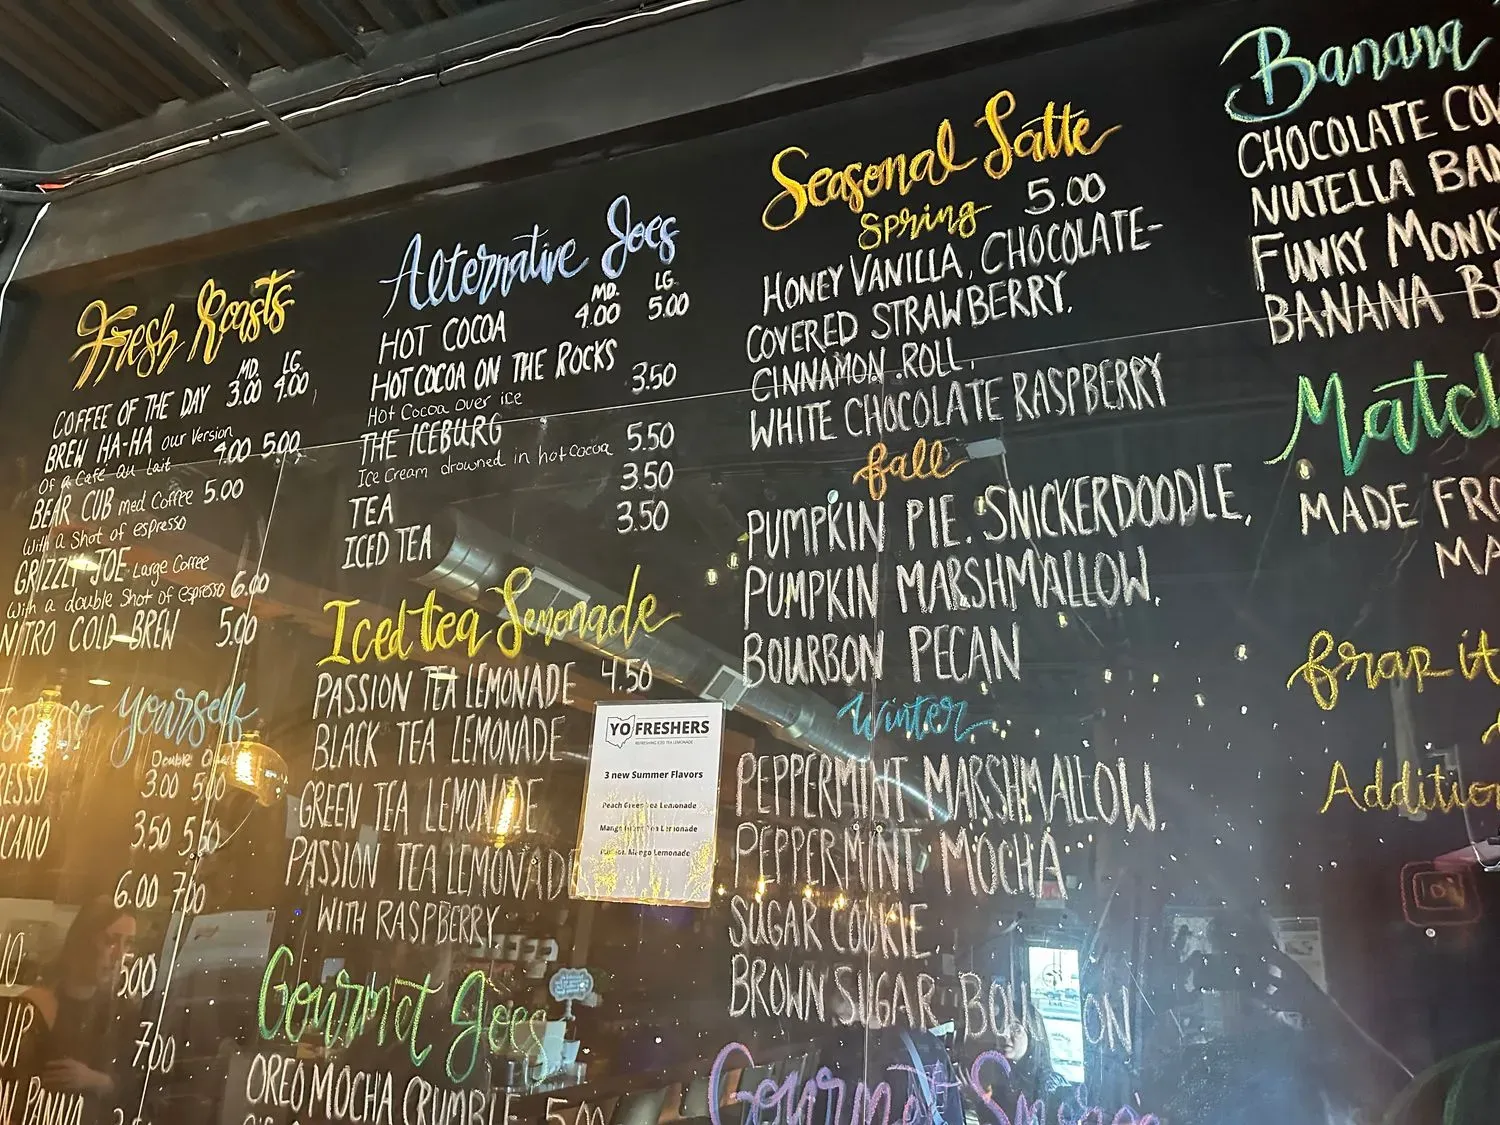 Fresh Roasts
MD. LG.
COFFEE OF THE DAY 3.00 4.00
BREW HA-HA our Version 4.00 5.00
Of a Café au Lait
BEAR CUB med Coffee 5.00
With a Shot of espresso
GRIZZLY JOE Large Coffee
With a double Shot of espresso 6.00
NITRO COLD BREW 5.00
yourself
Double
3.00 5.00
3.50 5.50
6.00 7.00
5.00
7.00
PANNA
Alternative Joes
MD. LG.
HOT COCOA 4.00 5.00
HOT COCOA ON THE ROCKS 3.50
Hot Cocoa over ice
THE ICEBURG 5.50
Ice Cream drowned in hot cocoa
TEA 3.50
ICED TEA 3.50
Iced tea Lemonade
PASSION TEA LEMONADE 4.50
BLACK TEA LEMONADE
GREEN TEA LEMONADE
PASSION TEA LEMONADE
WITH RASPBERRY
YO FRESHERS
REFRESHING ICED TEA LEMONADE
3 new Summer Flavors
Peach Green Tea Lemonade
Mango Tea Lemonade
Mango Lemonade
Gourmet Joes
OREO MOCHA CRUMBLE 5.00
Seasonal Latte
Spring 5.00
HONEY VANILLA, CHOCOLATE-
COVERED STRAWBERRY,
CINNAMON ROLL,
WHITE CHOCOLATE RASPBERRY
fall
PUMPKIN PIE, SNICKERDOODLE,
PUMPKIN MARSHMALLOW,
BOURBON PECAN
Winter
PEPPERMINT MARSHMALLOW,
PEPPERMINT MOCHA
SUGAR COOKIE,
BROWN SUGAR BOURBON
Gourmet
Banana
CHOCOLATE
NUTELLA
FUNKY
BANANA
MADE
frap it